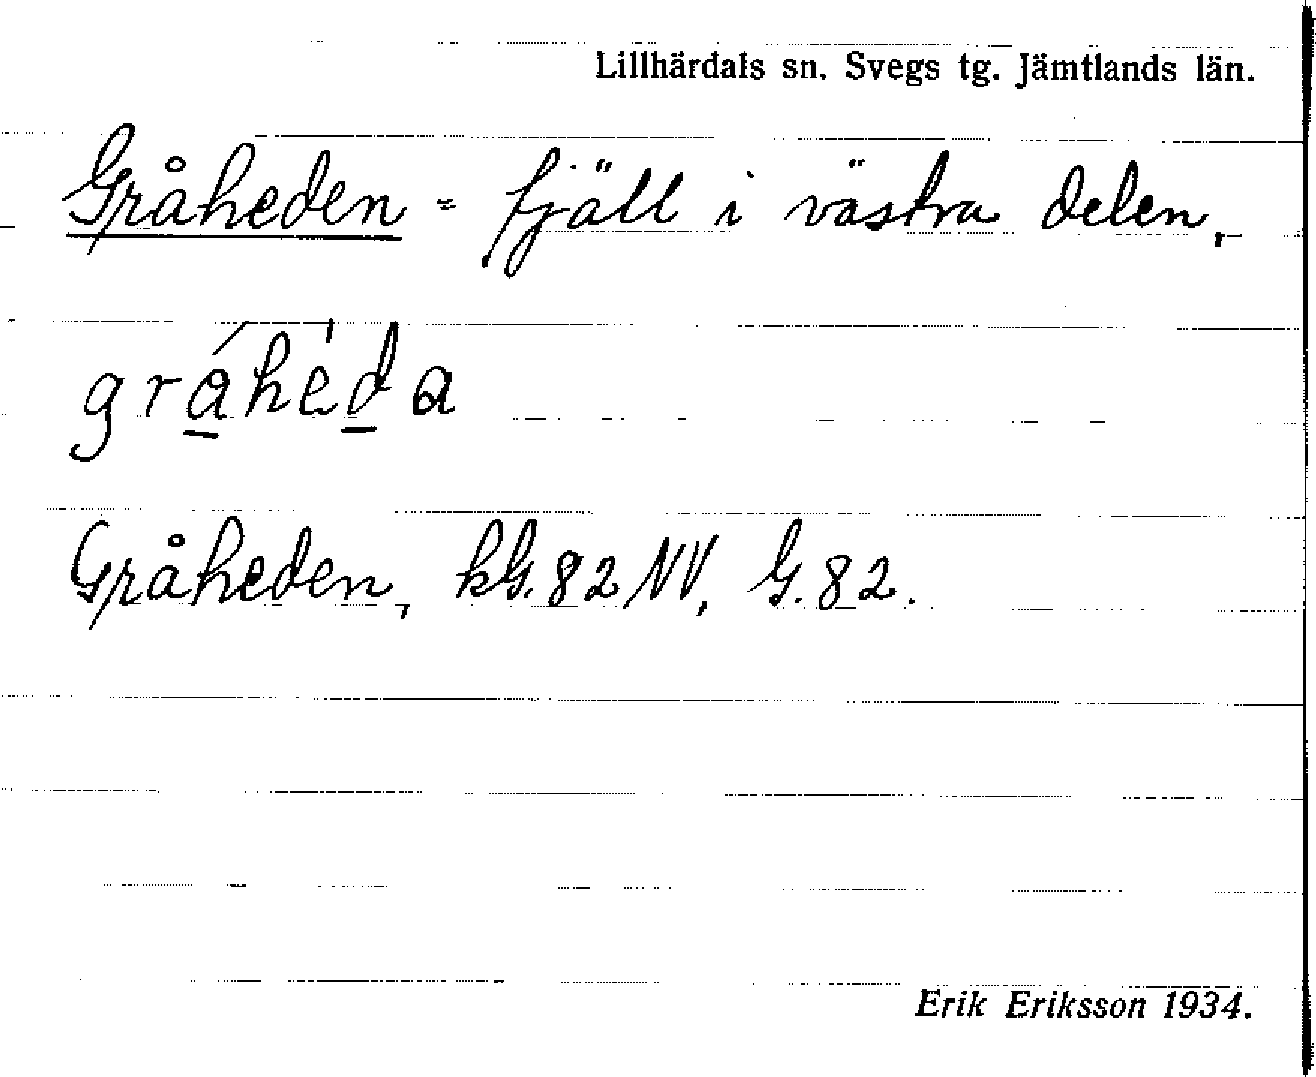 Lillhärdals sn. Svegs tg. Jämtlands län.
Gråheden = fjäll i västra delen,
gráhéda
Gråheden, kG. 82 NV, G. 82.
Erik Eriksson 1934.